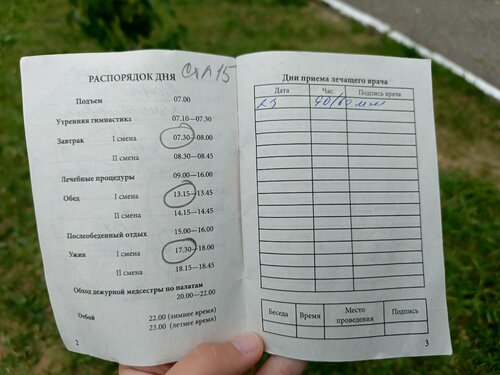 РАСПОРЯДОК ДНЯ
Подъем 07.00
Утренняя гимнастика 07.10—07.30
Завтрак I смена 07.30—08.00
II смена 08.30—08.45
Лечебные процедуры 09.00—16.00
Обед I смена 13.15—13.45
II смена 14.15—14.45
Послеобеденный отдых 15.00—16.00
Ужин I смена 17.30—18.00
II смена 18.15—18.45
Обход дежурной медсестры по палатам
20.00—22.00
Отбой 22.00 (зимнее время)
23.00 (летнее время)
2
Дни приема лечащего врача
Дата Час Подпись врача
Беседа Время Место проведения Подпись
3